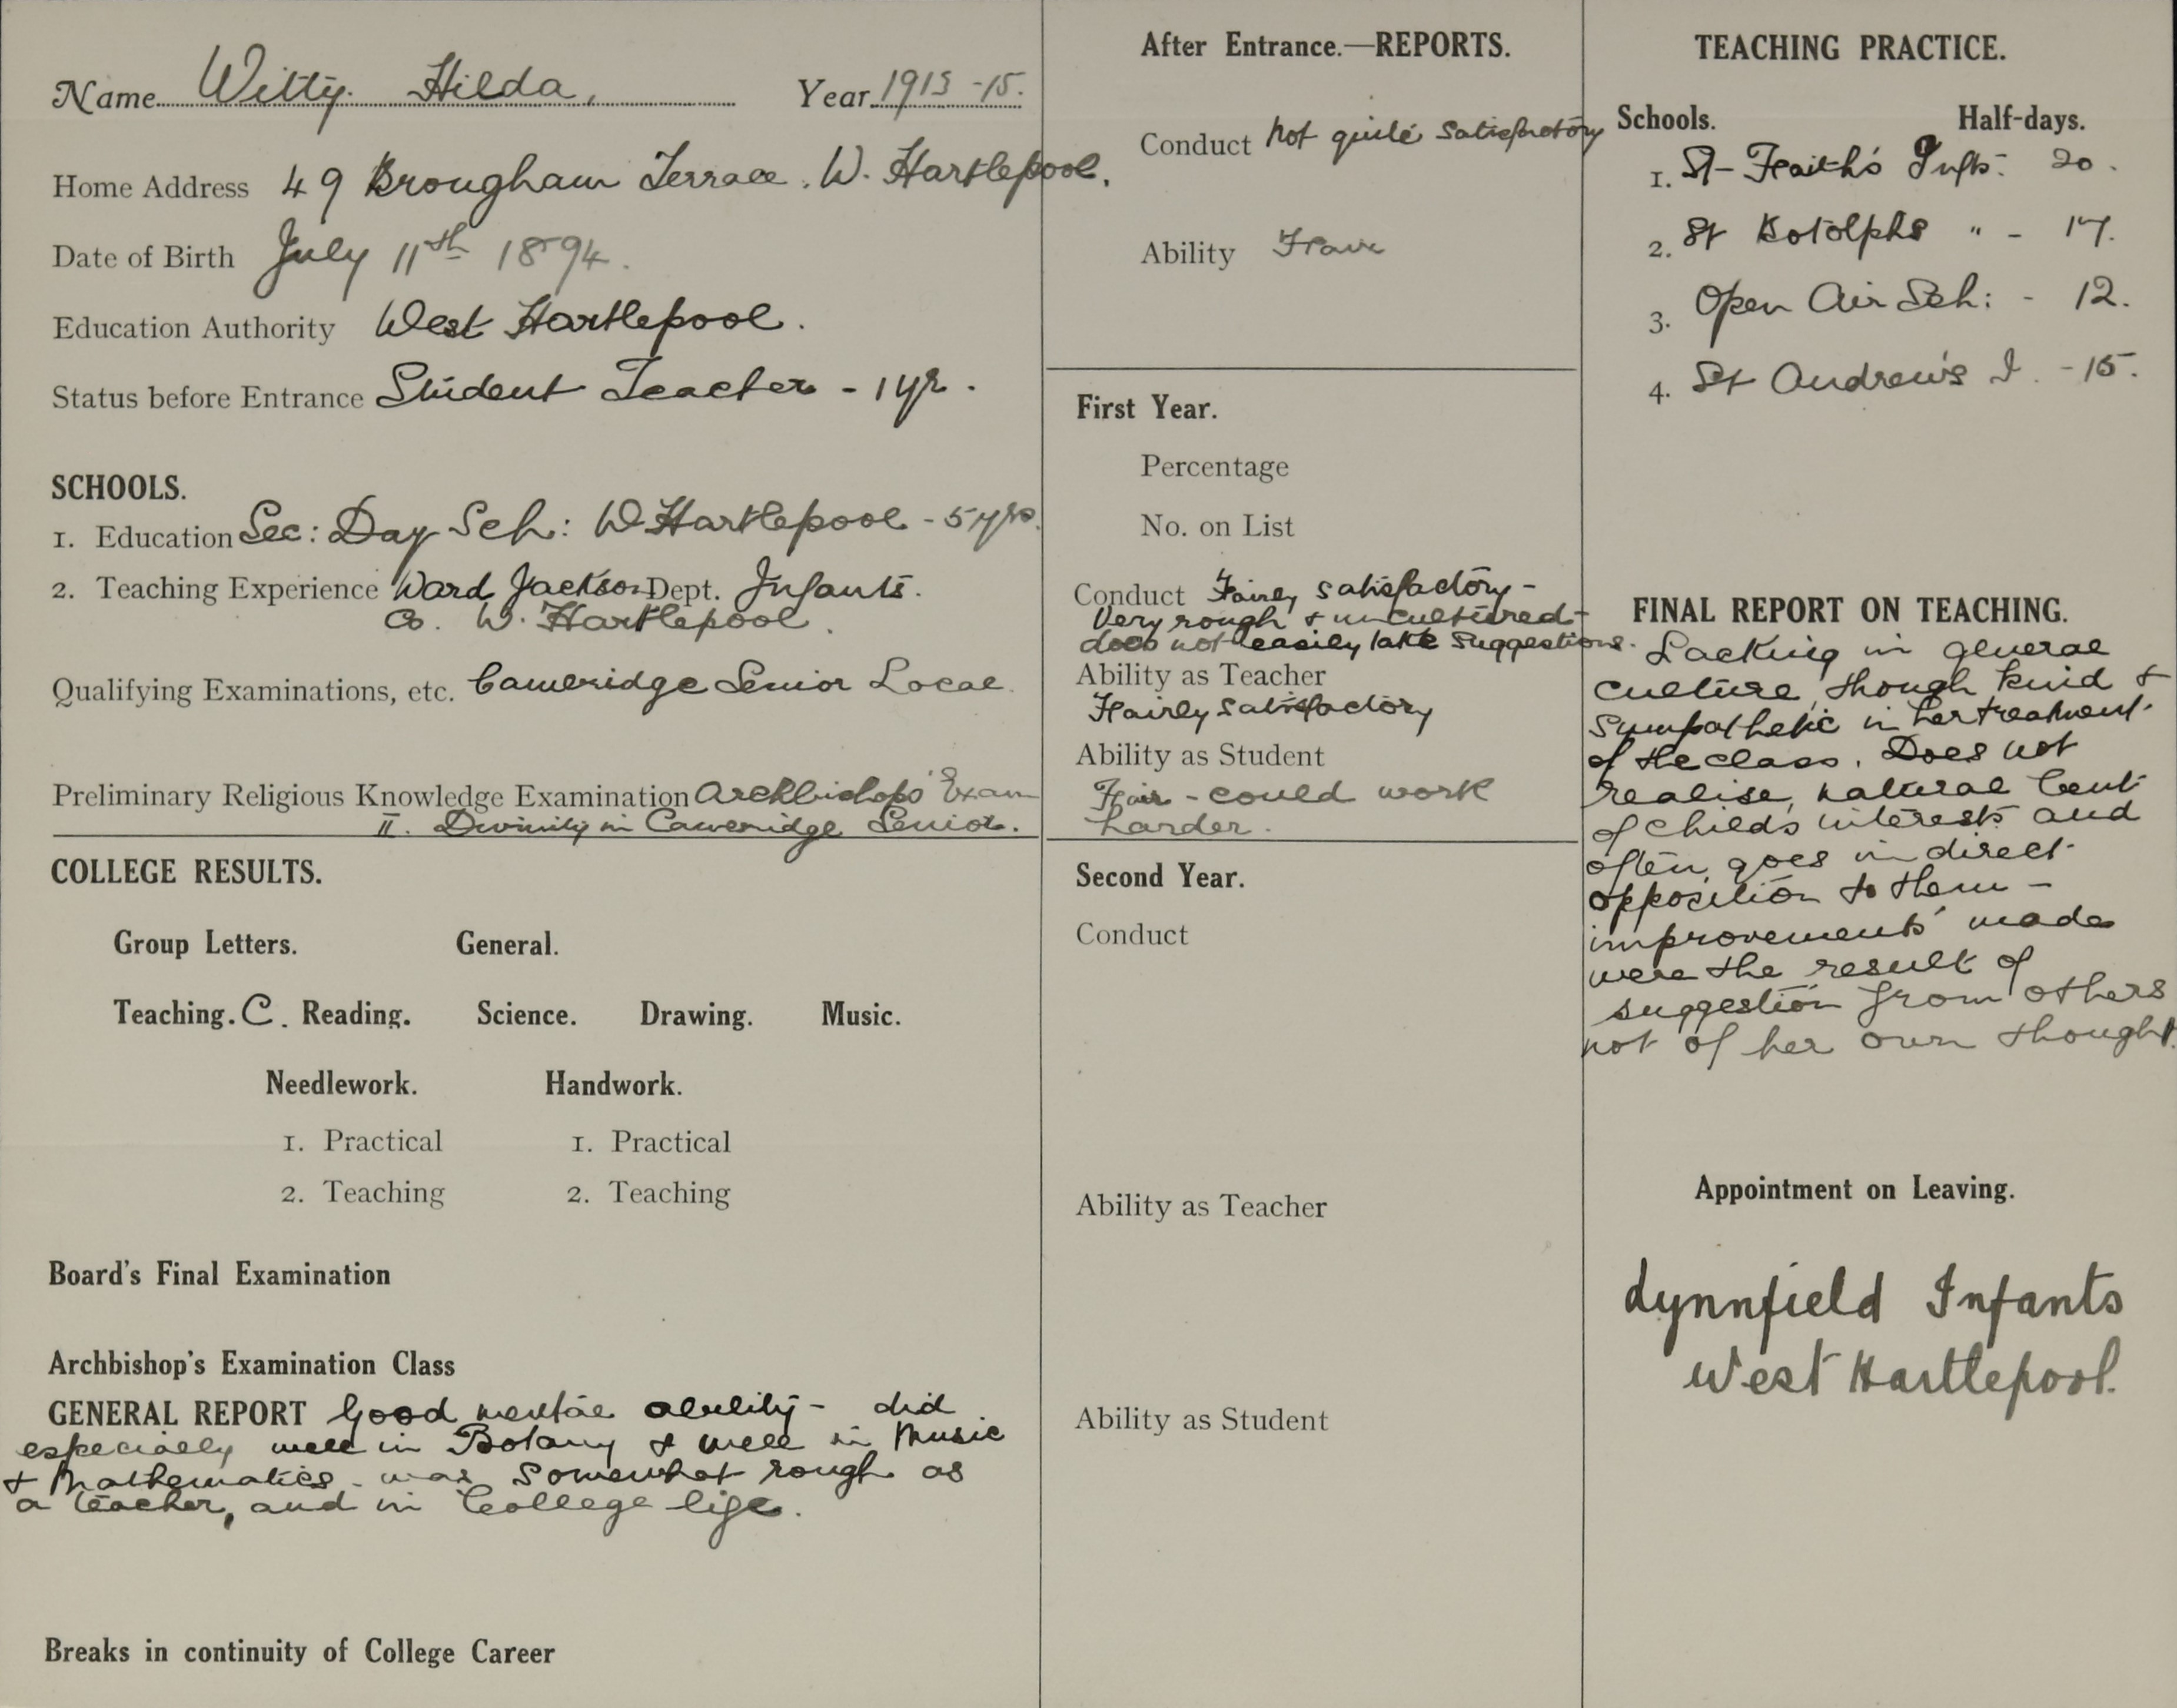 Name Witty. Hilda, Year 1913-15.
Home Address 49 Brougham Terrace. W. Hartlepool.
Date of Birth July 11th 1894.
Education Authority West Hartlepool.
Status before Entrance Student Teacher - 1 yr.
SCHOOLS.
1. Education Sec: Day Sch: W Hartlepool - 5 yrs.
2. Teaching Experience Ward Jackson Dept. Infants.
Co. W. Hartlepool.
Qualifying Examinations, etc. Cambridge Senior Local.
Preliminary Religious Knowledge Examination Archbishops' Exam
II. Divinity in Cambridge Senior.
COLLEGE RESULTS.
Group Letters. General.
Teaching. C. Reading. Science. Drawing. Music.
Needlework. Handwork.
1. Practical 1. Practical
2. Teaching 2. Teaching
Board's Final Examination
Archbishop's Examination Class
GENERAL REPORT Good mental ability - did
especially well in Botany & well in Music
& Mathematics - was somewhat rough as
a teacher, and in College life.
Breaks in continuity of College Career
After Entrance.—REPORTS.
Conduct Not quite satisfactory
Ability Fair
First Year.
Percentage
No. on List
Conduct Fairly satisfactory -
Very rough & uncultured -
does not easily take suggestions.
Ability as Teacher
Fairly satisfactory
Ability as Student
Fair - could work
harder.
Second Year.
Conduct
Ability as Teacher
Ability as Student
TEACHING PRACTICE.
Schools. Half-days.
1. St Faith's Infts: 20.
2. St Botolphs " - 17.
3. Open Air Sch: - 12.
4. St Andrew's I. - 15.
FINAL REPORT ON TEACHING.
Lacking in general
culture, though kind &
sympathetic in her treatment
of the class. Does not
realise natural bent
of child's interests and
often goes in direct
opposition to them -
improvements made
were the result of
suggestion from others
not of her own thought.
Appointment on Leaving.
Lynnfield Infants
West Hartlepool.